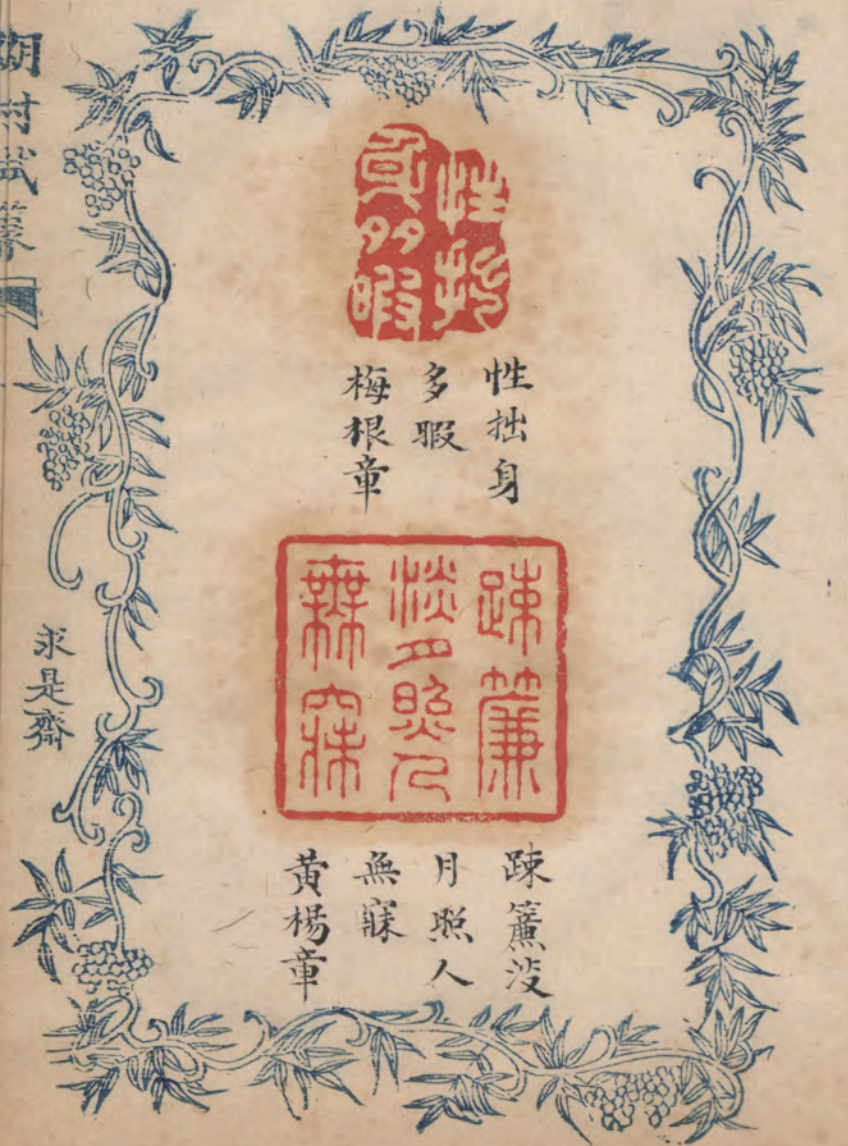 性拙
身多暇
性拙身
多暇
梅根章
踈簾
淡月照人
無寐
踈簾淡
月照人
無寐
黃楊章
求是齋